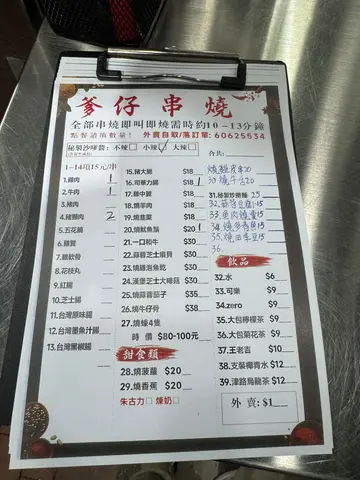 爹仔串燒
全部串燒即叫即燒需時約10-13分鐘
點餐請填數量! 外賣自取/落訂單: 60625534
秘製沙嗲醬: 不辣□ 小辣☑ 大辣□
合共:
1-14項15元/串
1.雞肉 1
2.牛肉 1
3.豬肉
4.豬頸肉 2
5.五花腩
6.雞翼
7.雞軟骨
8.花枝丸
9.紅腸
10.芝士腸
11.台灣原味腸
12.台灣墨魚汁腸
13.台灣黑椒腸
15.豬大腸 $18
16.司華力腸 $18 1
17.雞中翼 $18
18.燒羊肉 $18
19.燒韭菜 $18
20.燒魷魚鬚 $20 1
21.一口和牛 $30
22.蒜蓉芝士扇貝 $30
23.燒雞泡魚乾 $30
24.漢堡芝士大啡菇 $30
25.燒蒜蓉茄子 $35
26.燒牛仔骨 $38
27.燒蠔4隻
時價 $80-100元
甜食類
28.燒菠蘿 $20
29.燒香蕉 $20
朱古力□ 煉奶□
皮串20
20
25
15
15
15
15
36.
飲品
32.水 $6
33.可樂 $9
34.zero $9
35.大包檸檬茶 $9
36.大包菊花茶 $9
37.王老吉 $10
38.支裝椰青水 $12
39.津路烏龍茶 $12
外賣:$1